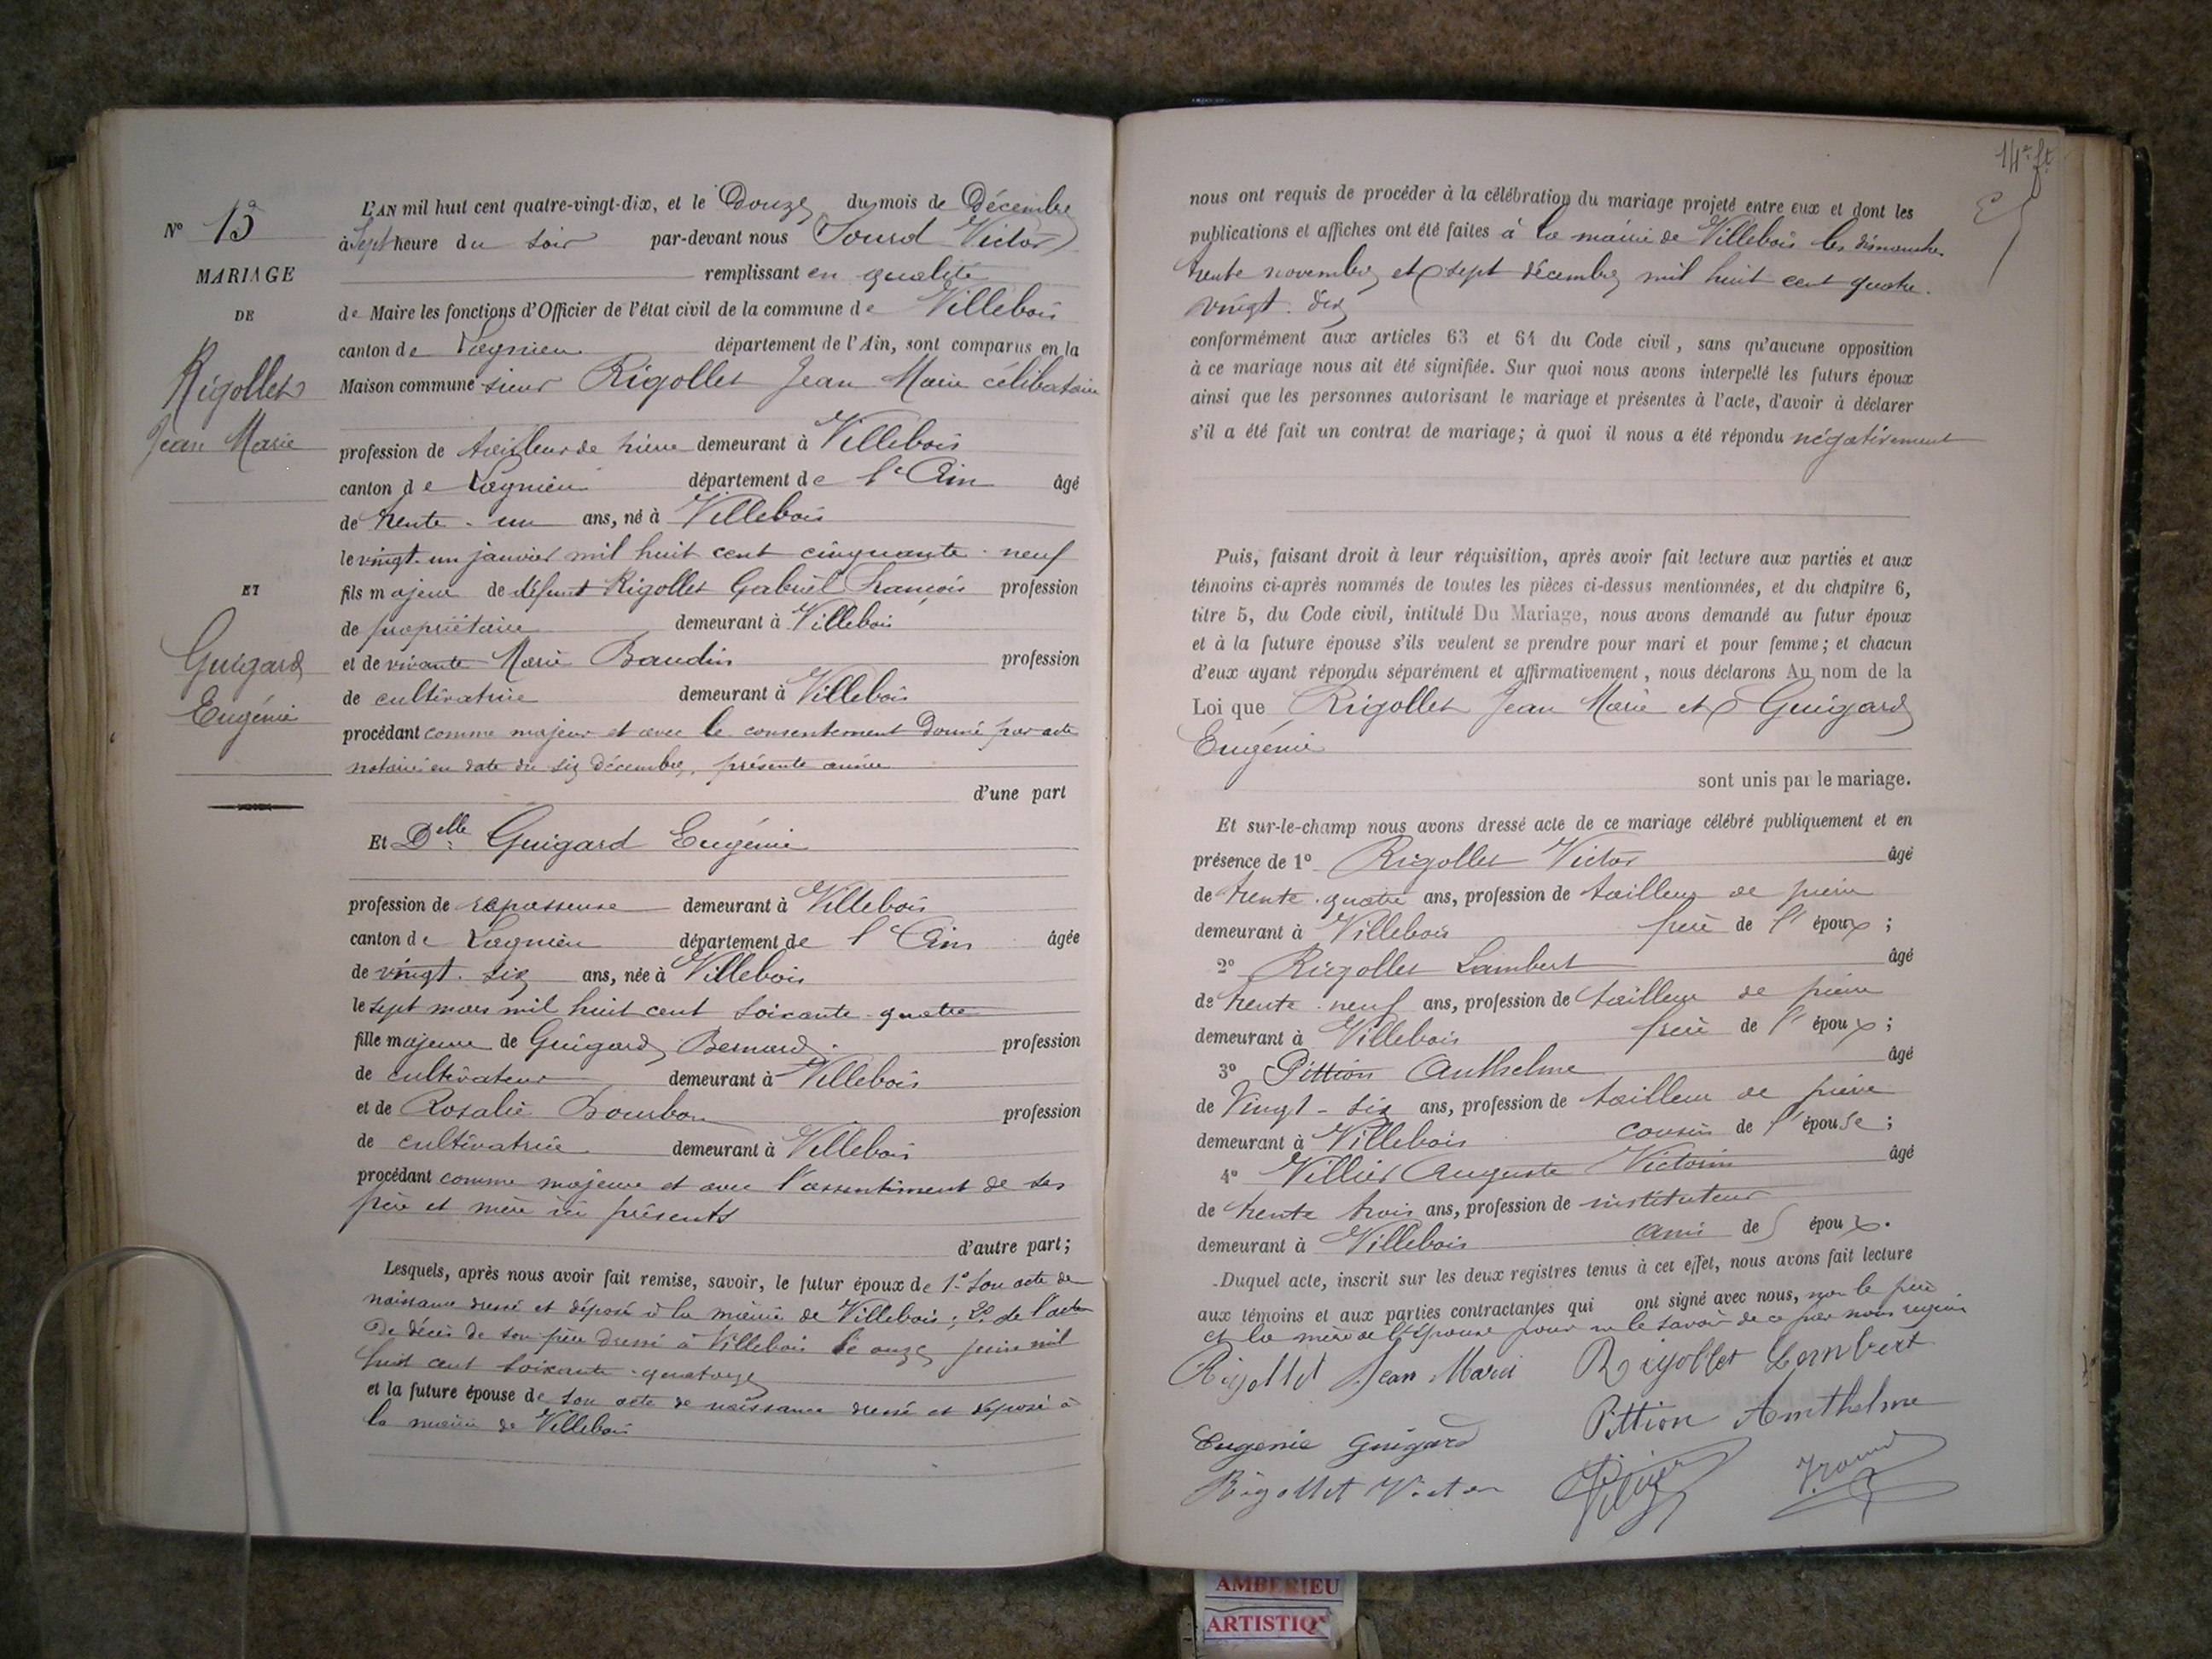 N° 15
MARIAGE
DE
Rigollet
Jean Marie
ET
Guigard
Eugénie
L'AN mil huit cent quatre-vingt-dix, et le Douze du mois de Décembre
à Sept heure du soir par-devant nous Sourd Victor
remplissant en qualité
de Maire les fonctions d'Officier de l'état civil de la commune de Villebois
canton de Lagnieu département de l'Ain, sont comparus en la
Maison commune sieur Rigollet Jean Marie célibataire
profession de tailleur de pierre demeurant à Villebois
canton de Lagnieu département de l'Ain âgé
de trente-un ans, né à Villebois
le vingt-un janvier mil huit cent cinquante-neuf
fils majeur de défunt Rigollet Gabriel François profession
de propriétaire demeurant à Villebois
et de vivante Marie Baudin profession
de cultivatrice demeurant à Villebois
procédant comme majeur et avec le consentement donné par acte
notarié en date du six décembre, présente année
d'une part
Et Delle Guigard Eugénie
profession de repasseuse demeurant à Villebois
canton de Lagnieu département de l'Ain âgée
de vingt-six ans, née à Villebois
le sept mars mil huit cent soixante-quatre
fille majeure de Guigard Bernard profession
de cultivateur demeurant à Villebois
et de Rosalie Bourbon profession
de cultivatrice demeurant à Villebois
procédant comme majeure et avec l'assentiment de ses
père et mère ici présents
d'autre part;
Lesquels, après nous avoir fait remise, savoir, le futur époux de 1° Son acte de
naissance dressé et déposé à la mairie de Villebois; 2° de l'acte
de décès de son père dressé à Villebois le onze juin mil
huit cent soixante-quatorze
et la future épouse de son acte de naissance dressé et déposé à
la mairie de Villebois
14e ft
nous ont requis de procéder à la célébration du mariage projeté entre eux et dont les
publications et affiches ont été faites à la mairie de Villebois les dimanches
trente novembre et sept décembre mil huit cent quatre-
vingt-dix
conformément aux articles 63 et 64 du Code civil, sans qu'aucune opposition
à ce mariage nous ait été signifiée. Sur quoi nous avons interpellé les futurs époux
ainsi que les personnes autorisant le mariage et présentes à l'acte, d'avoir à déclarer
s'il a été fait un contrat de mariage; à quoi il nous a été répondu négativement
Puis, faisant droit à leur réquisition, après avoir fait lecture aux parties et aux
témoins ci-après nommés de toutes les pièces ci-dessus mentionnées, et du chapitre 6,
titre 5, du Code civil, intitulé Du Mariage, nous avons demandé au futur époux
et à la future épouse s'ils veulent se prendre pour mari et pour femme; et chacun
d'eux ayant répondu séparément et affirmativement, nous déclarons Au nom de la
Loi que Rigollet Jean Marie et Guigard
Eugénie
sont unis par le mariage.
Et sur-le-champ nous avons dressé acte de ce mariage célébré publiquement et en
présence de 1° Rigollet Victor âgé
de trente-quatre ans, profession de tailleur de pierre
demeurant à Villebois frère de l'époux;
2° Rigollet Lambert âgé
de trente-neuf ans, profession de tailleur de pierre
demeurant à Villebois frère de l'époux;
3° Pittion Anthelme âgé
de Vingt-six ans, profession de tailleur de pierre
demeurant à Villebois cousin de l'épouse;
4° Villier Auguste Victorin âgé
de trente trois ans, profession de instituteur
demeurant à Villebois ami de époux.
Duquel acte, inscrit sur les deux registres tenus à cet effet, nous avons fait lecture
aux témoins et aux parties contractantes qui ont signé avec nous, non le père
et la mère de l'Epouse pour ne le savoir de ce par nous requis
Rigollet Jean Marie Rigollet Lambert
Eugenie Guigard Pittion Amthelme
Rigollet Victor
AMBERIEU
ARTISTIQ